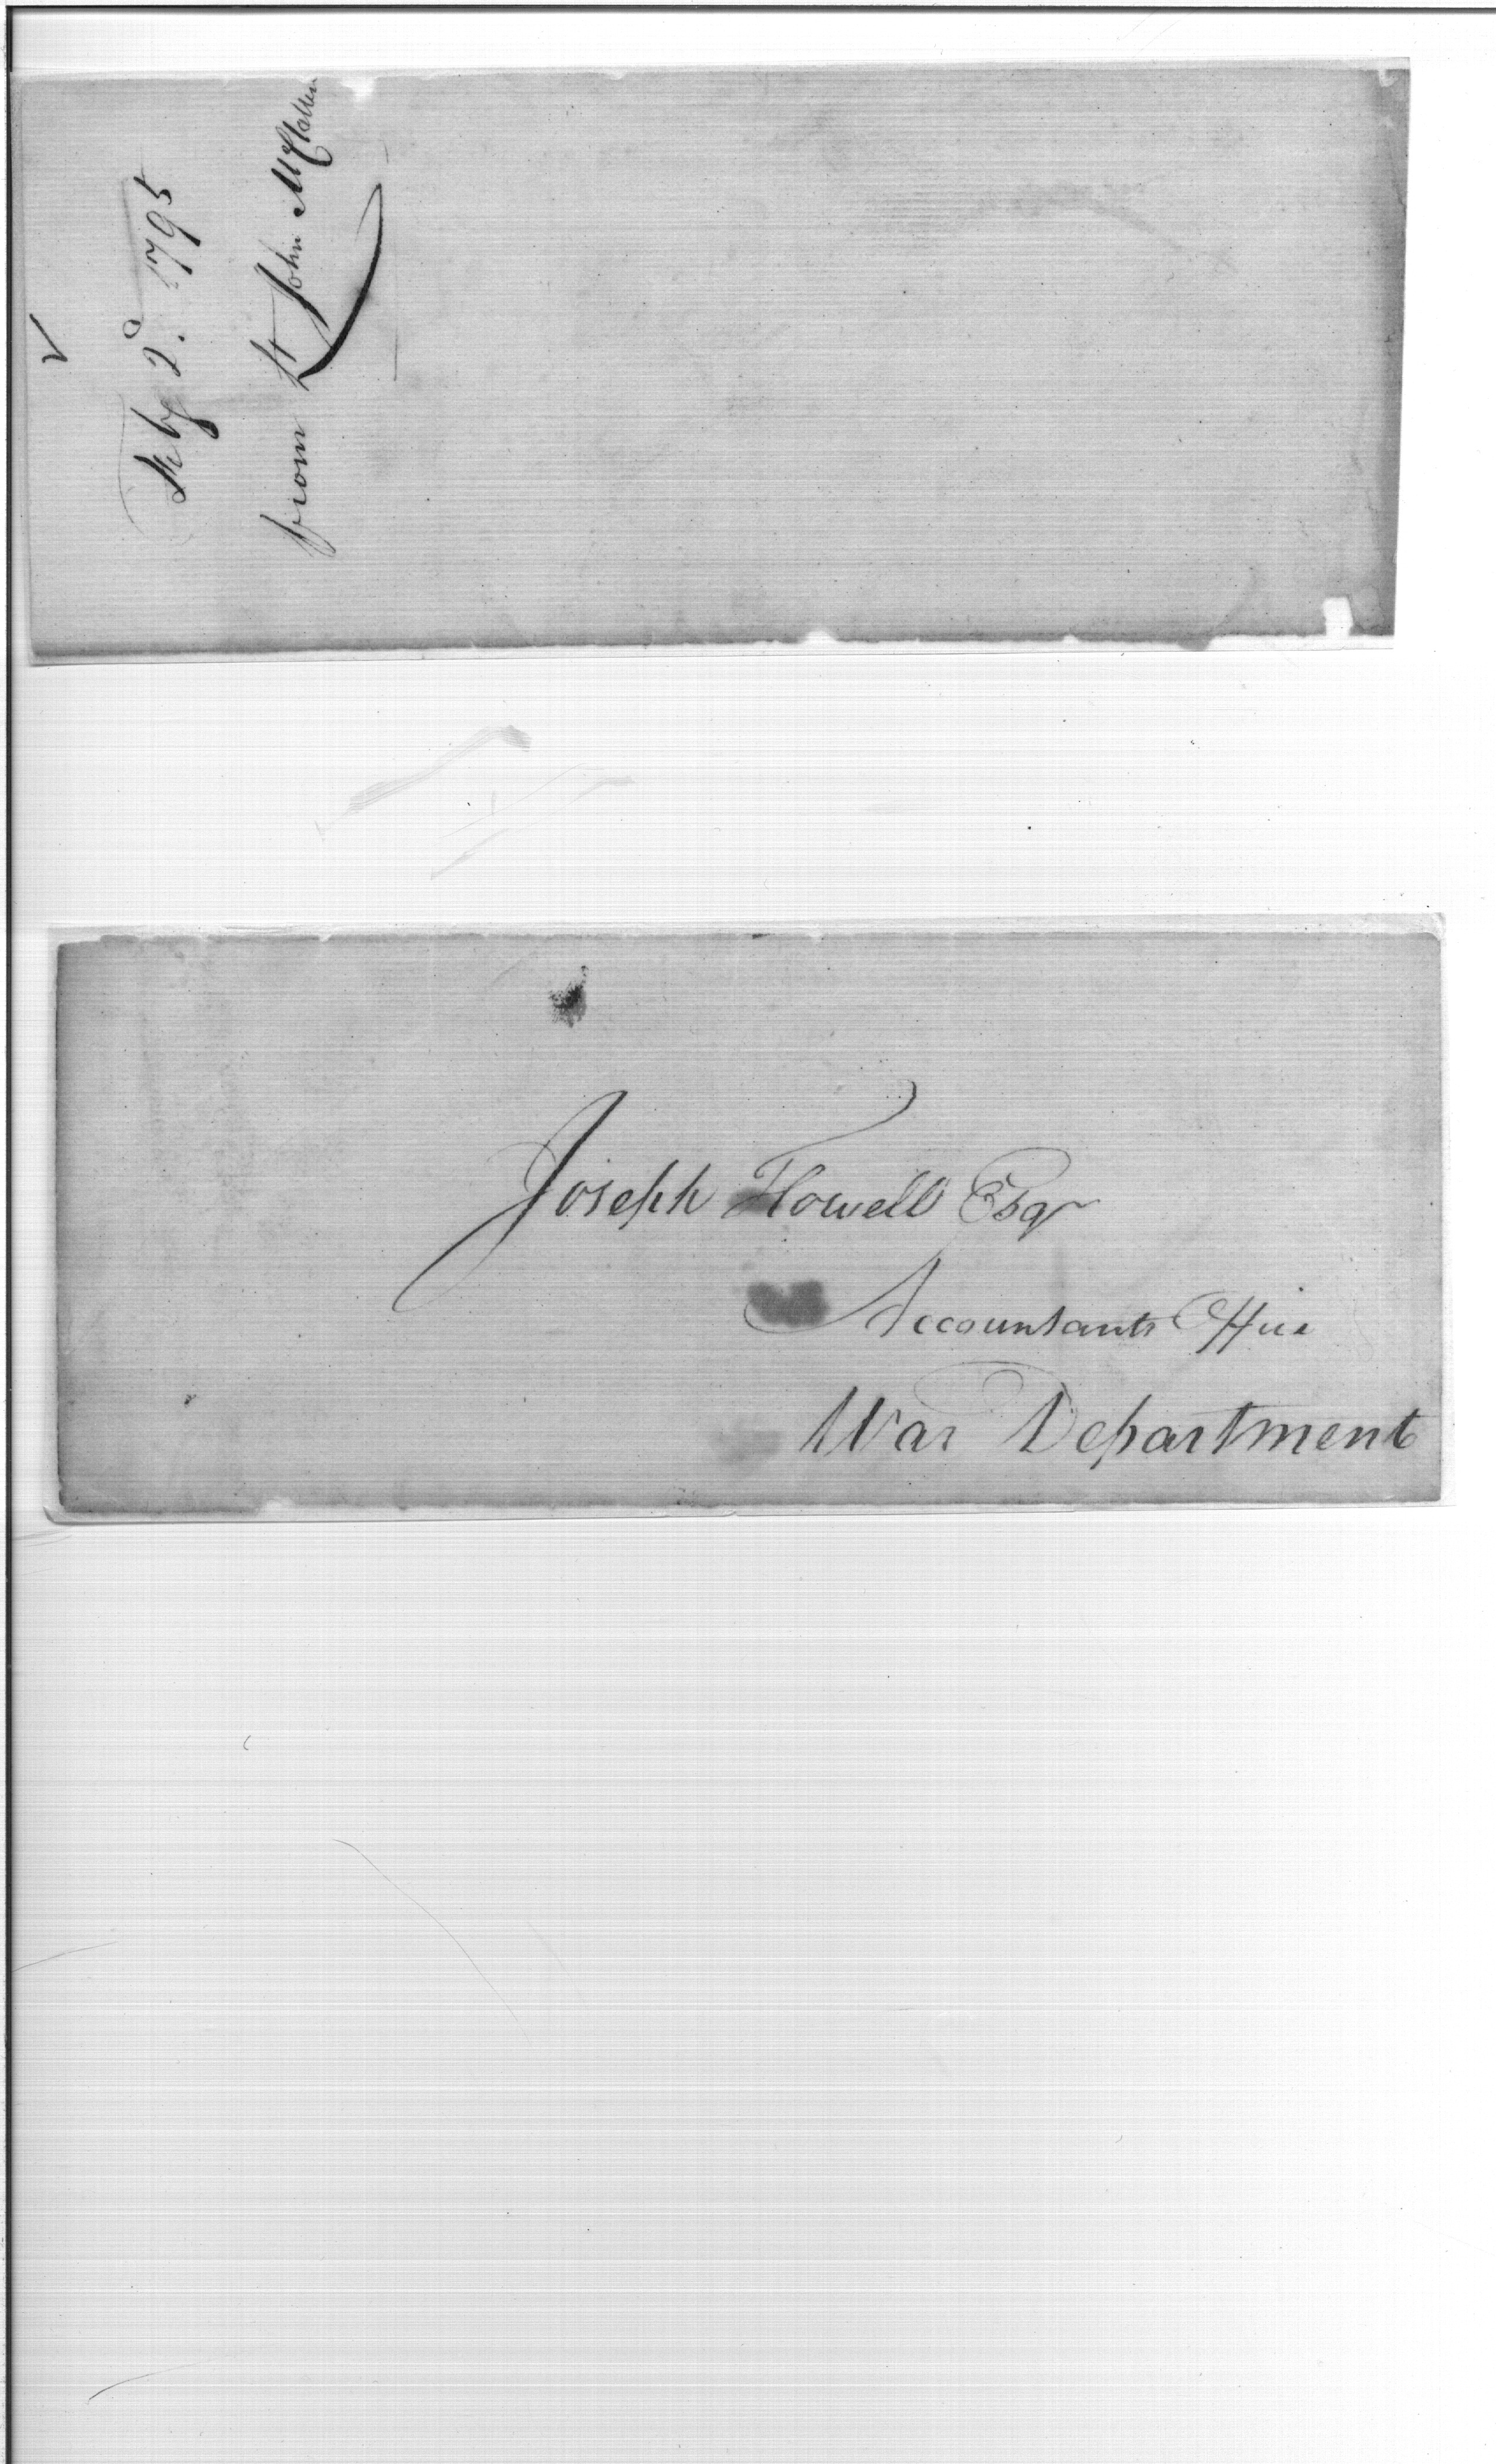 Feby 2d. 1795
from Lt John McClallen
Joseph Howell Esqr
Accountants Office
War Department